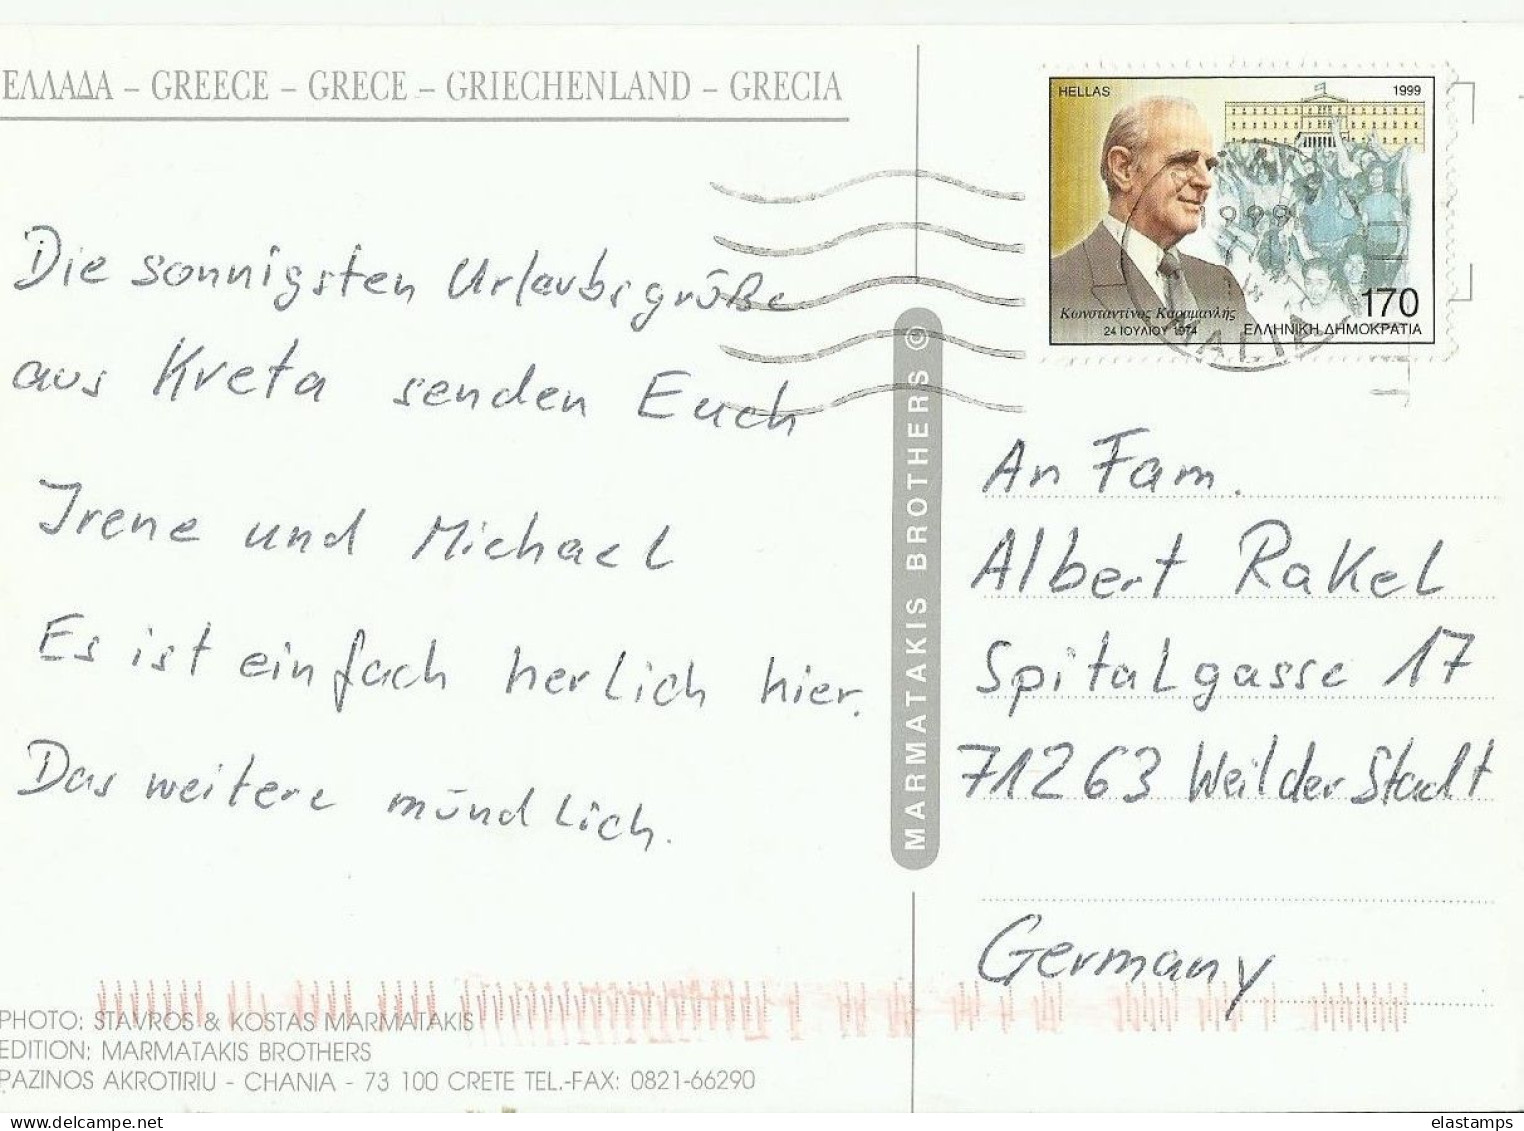 ΕΛΛΑΔΑ – GREECE – GRECE – GRIECHENLAND – GRECIA
HELLAS 1999
Κωνσταντίνος Καραμανλής
24 ΙΟΥΛΙΟΥ 1974
170
ΕΛΛΗΝΙΚΗ ΔΗΜΟΚΡΑΤΙΑ
1999
Die sonnigsten Urlaubsgrüße
aus Kreta senden Euch
Irene und Michael
Es ist einfach herlich hier.
Das weitere mündlich.
MARMATAKIS BROTHERS ©
An Fam.
Albert Rakel
Spitalgasse 17
71263 Weil der Stadt
Germany
PHOTO: STAVROS & KOSTAS MARMATAKIS
EDITION: MARMATAKIS BROTHERS
PAZINOS AKROTIRIU - CHANIA - 73 100 CRETE TEL.-FAX: 0821-66290
elastamps